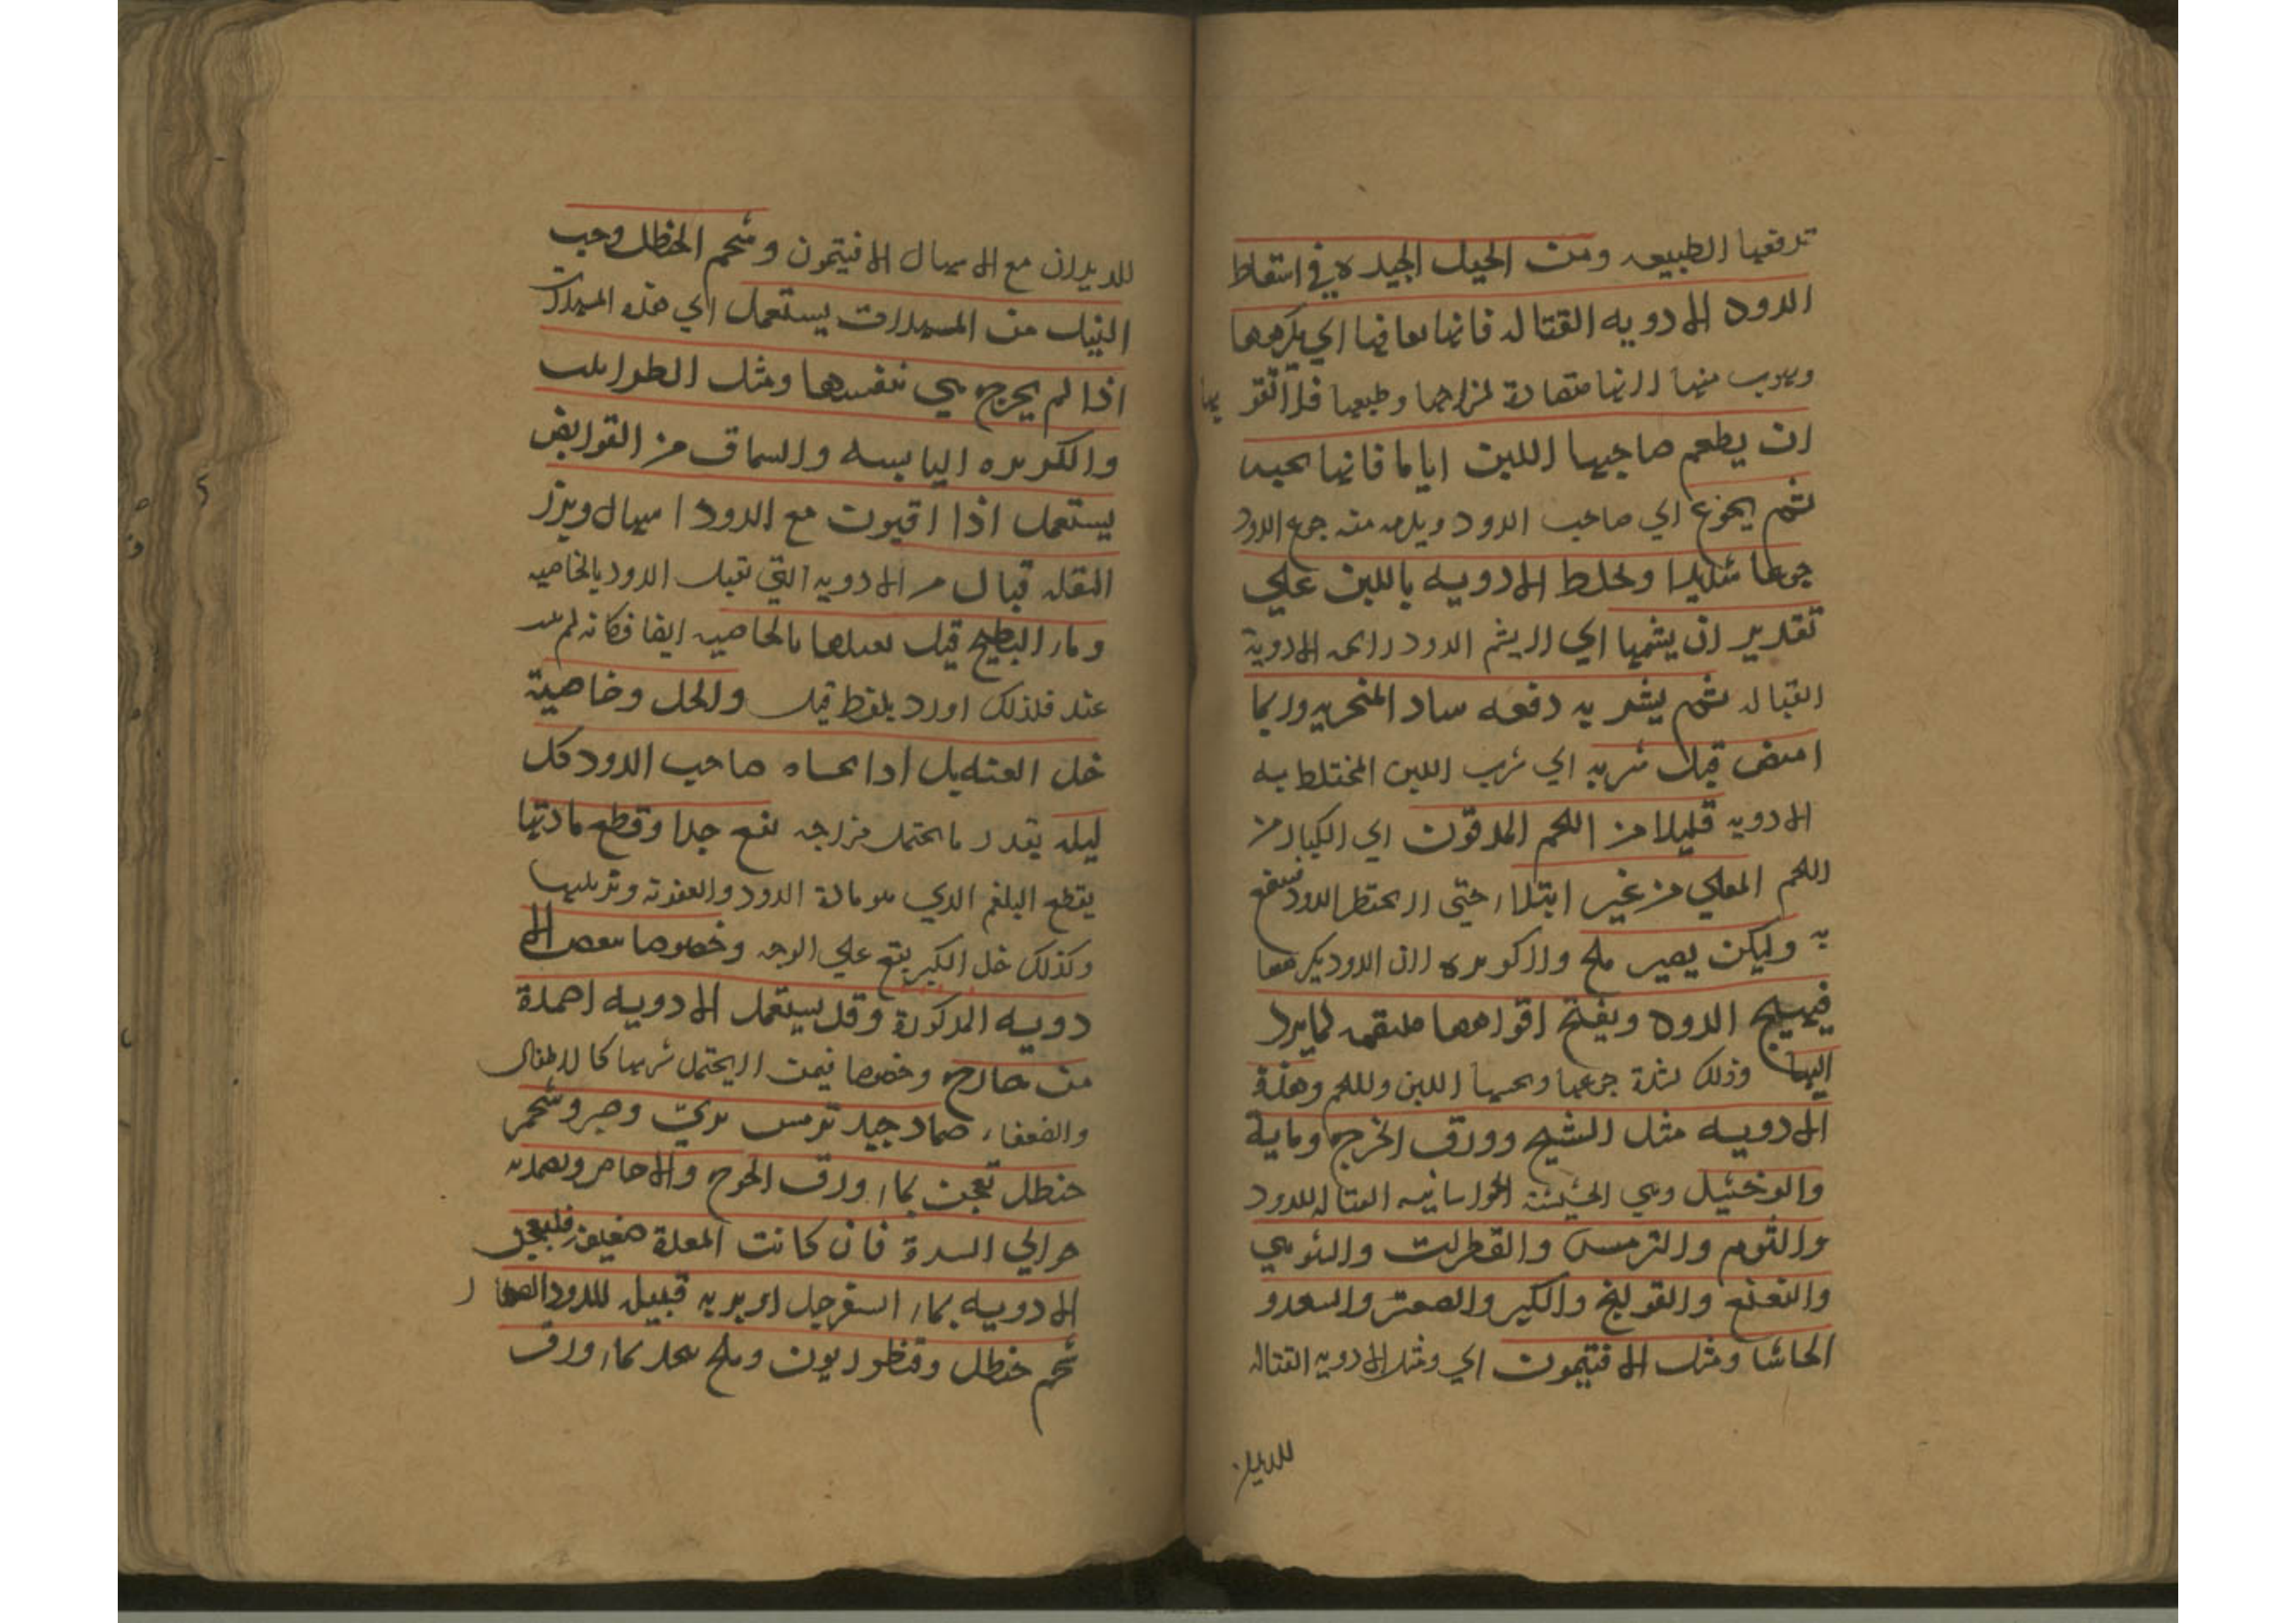 تدفعها الطبيعه ومن الحيل الجيده في اسقاط
الدود الادويه القتاله فانها تعافها اي يكرهها
ويهرب منها لانها مضادة لمزاجها وطبعها
ان يطعم صاحبها اللبن اياما فانها تحبه
ثم يجوع اي صاحب الدود ويلزمه منه جوع الدود
جوعا شديدا ويخلط الادويه باللبن علي
تقدير ان يشمها اي لا يشم الدود رائحه الادوية
القتاله ثم يشربه دفعه ساد المنخريه وربما
امتص قبل شربه اي شرب اللبن المختلط به
الادويه قليلا من اللحم المدقوق اي الكباب من
اللحم المقلي من غير ابتلاع حتي
به وليكن يصير ملح ولا كزبره لان الدود يكرهها
فيهيج الدود ويفتح افواهها ملتقمه لما يرد
اليها وذلك لشدة جوعها ومحبتها اللبن واللحم وهذة
الادويه مثل الشيح وورق الخوخ ومايه
والوخشيك وهي الحشيشة الخراسانيه القتاله للدود
والثوم والترمس والقطران والشونيز
والنعنع والفوتنج والكبر والصعتر والسعد و
الحاشا ومثل الافتيمون اي ومثل الادويه القتاله
للديدان
للديدان مع الاسهال الافتيمون وشحم الحنظل وحب
النيل من المسهلات يستعمل اي هذه المسهلات
اذا لم يخرج هي بنفسها ومثل الطراثيث
والكزبره اليابسه والسماق من القوابض
يستعمل اذا اقترن مع الدود اسهال وبزر
البقله قتال من الادويه التي تقتل الدود بالخاصيه
وماء البطيخ قيل يقتلها بالخاصيه ايضا فكانه لم
عنده فلذلك اورد بلفظ قيل والخل وخاصية
خل العنصل اذا تحساه صاحب الدود كل
ليله بقدر ما يحتمل مزاجه نفع جدا وقطع مادتها
يقطع البلغم الذي هو مادة الدود والعفونه وتزيلها
وكذلك خل الكبر ينفع علي الوجه وخصوصا بعض الا
دويه المذكورة وقد يستعمل الادويه ضمادة
من خارج وخصوصا فيمن لا يحتمل شربها كالاطفال
والضعفاء ضماد جيد ترمس بري وصبر وشحم
حنظل تعجن بماء ورق الخوخ والاجاص ويضمد به
حوالي السرة فان كانت المعدة ضعيفه فليعجن
الادويه بماء السفرجل
شحم حنظل وقنطوريون وملح يتخذ بماء ورق